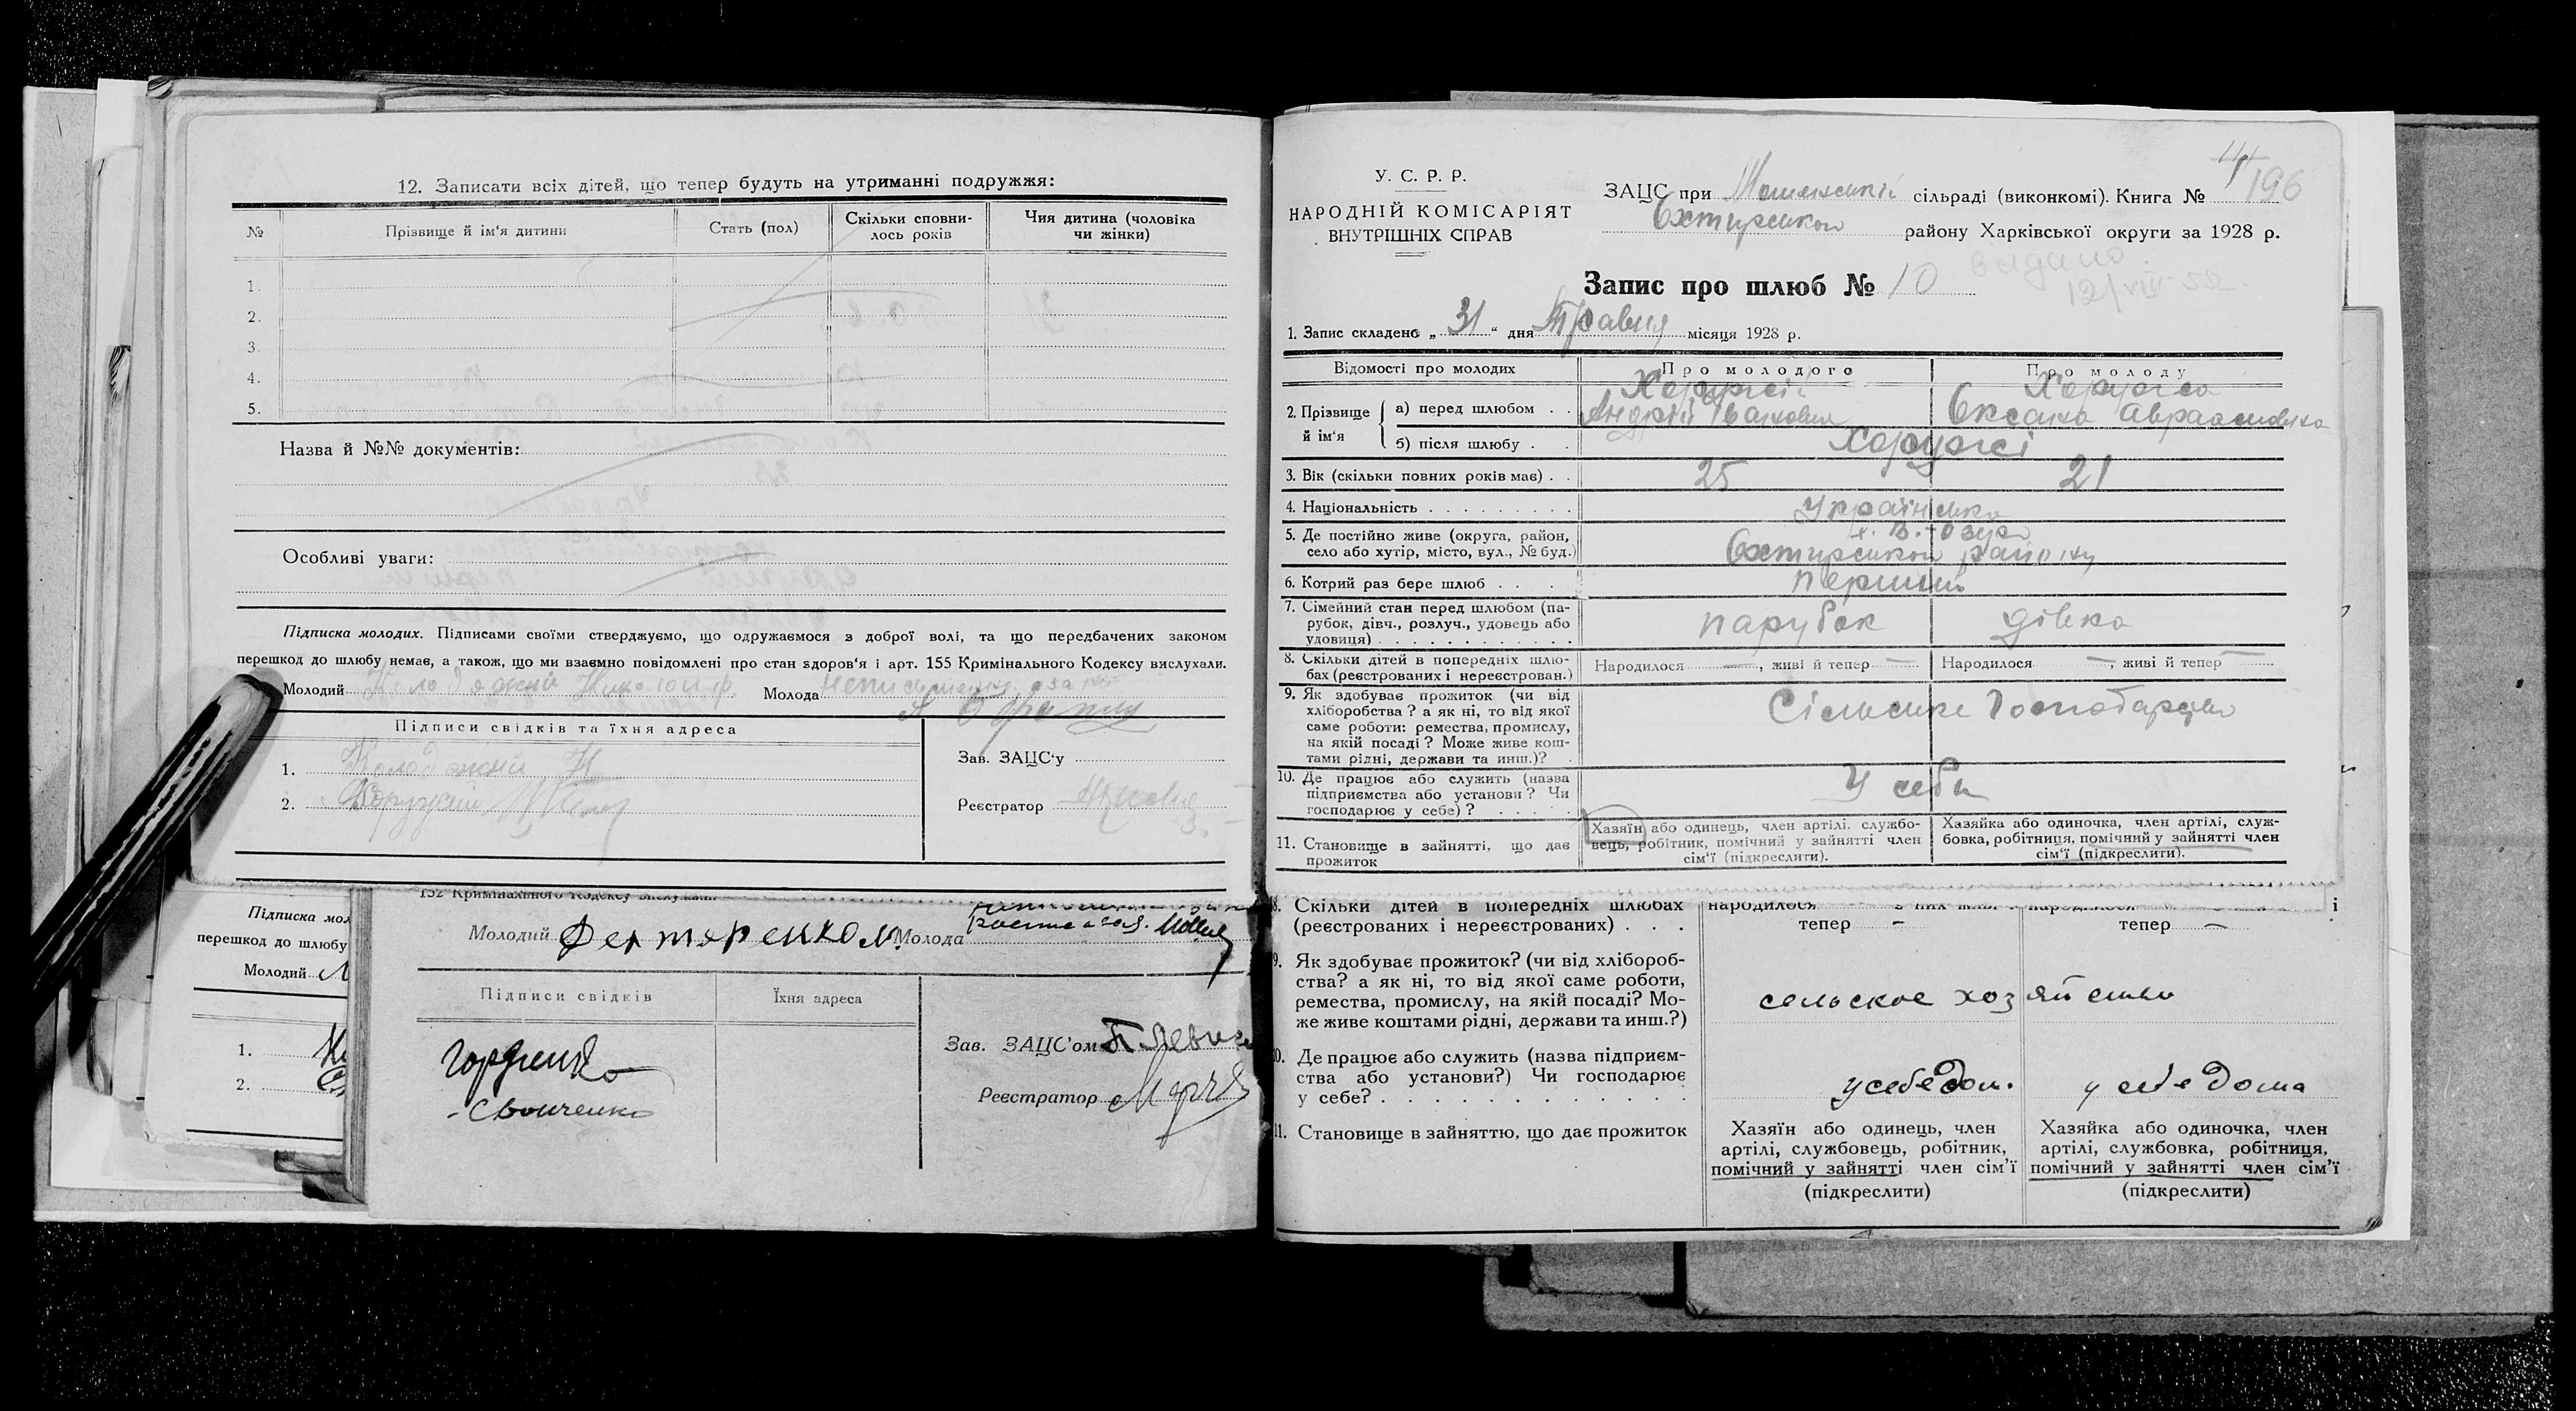 12. Записати всіх дітей, що тепер будуть на утриманні подружжя:
№ Прізвище й ім'я дитини Стать (пол) Скільки сповни-лось років Чия дитина (чоловіка чи жінки)
1.
2.
3.
4.
5.
Назва й №№ документів:
Особливі уваги:
Підписка молодих. Підписами своїми стверджуємо, що одружаємося з доброї волі, та що передбачених законом
перешкод до шлюбу немає, а також, що ми взаємно повідомлені про стан здоров'я і арт. 155 Кримінального Кодексу вислухали.
Молодий Молода
Підписи свідків та їхня адреса
1.
2.
Зав. ЗАЦС'у
Реєстратор
Підписка мол
перешкод до шлюбу
Молодий
1.
2.
152 Кримінального Кодексу вислухали.
Молодий Молода
Підписи свідків Їхня адреса
Гордієнко
Зав. ЗАЦС'ом
Реєстратор
У. С. Р. Р.
НАРОДНІЙ КОМІСАРІЯТ
ВНУТРІШНІХ СПРАВ
ЗАЦС при сільраді (виконкомі). Книга № 196
Охтирського району Харківської округи за 1928 р.
Запис про шлюб № 10
видано
12/VIII-52.
1. Запис складено „ 31 " дня Травня місяця 1928 р.
Відомості про молодих Про молодого Про молоду
2. Прізвище й ім'я
а) перед шлюбом . . Хоружій Андрій Іванович Хоружа Оксана Авраамовна
б) після шлюбу . Хоружі
3. Вік (скільки повних років має) . . 25 21
4. Національність . . . . . . . . . Українська
5. Де постійно живе (округа, район,
село або хутір, місто, вул., № буд.) х. В.-Озеро
Охтирського району
6. Котрий раз бере шлюб . . . . перший
7. Сімейний стан перед шлюбом (па-
рубок, дівч., розлуч., удовець або
удовиця) . . . . . . . . . . . . парубок дівка
8. Скільки дітей в попередніх шлю-
бах (реєстрованих і нереєстрован.) Народилося —, живі й тепер — Народилося —, живі й тепер —
9. Як здобуває прожиток (чи від
хліборобства? а як ні, то від якої
саме роботи: ремества, промислу,
на якій посаді? Може живе кош-
тами рідні, держави та инш.)? Сільське Господарство
10. Де працює або служить (назва
підприємства або установи? Чи
господарює у себе)? . . . . . У себе
11. Становище в зайнятті, що дає
прожиток
Хазяїн або одинець, член артілі. службо-
вець, робітник, помічний у зайнятті член
сім'ї (підкреслити).
Хазяйка або одиночка, член артілі, служ-
бовка, робітниця, помічний у зайнятті член
сім'ї (підкреслити).
8. Скільки дітей в попередніх шлюбах
(реєстрованих і нереєстрованих) . . . тепер – тепер —
9. Як здобуває прожиток? (чи від хлібороб-
ства? а як ні, то від якої саме роботи,
ремества, промислу, на якій посаді? Мо-
же живе коштами рідні, держави та инш.?)
сельское хозяйство
10. Де працює або служить (назва підприєм-
ства або установи?) Чи господарює
у себе? . . . . . . . . . . . . . у себе дом. у себе дома
11. Становище в зайняттю, що дає прожиток
Хазяїн або одинець, член
артілі, службовець, робітник,
помічний у зайнятті член сім'ї
(підкреслити)
Хазяйка або одиночка, член
артілі, службовка, робітниця,
помічний у зайнятті член сім'ї
(підкреслити)